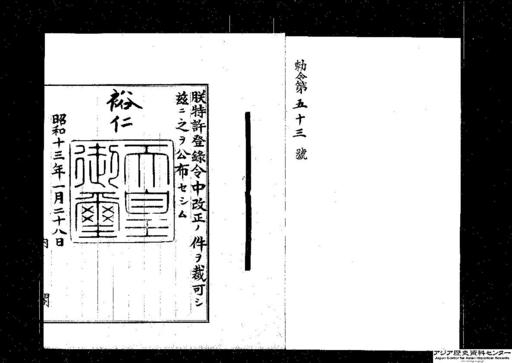 勅令第五十三號
朕特許登錄令中改正ノ件ヲ裁可シ
茲ニ之ヲ公布セシム
裕仁
天皇御璽
昭和十三年一月二十八日
内閣
アジア歴史資料センター
Japan Center for Asian Historical Records